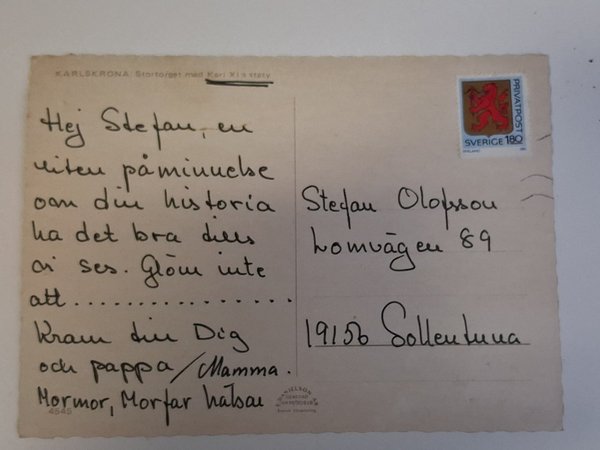 KARLSKRONA: Stortorget med Karl XI:s staty
Hej Stefan, en
liten påminnelse
om din historia
ha det bra tills
vi ses. Glöm inte
att..................
Kram till Dig
och pappa/Mamma.
Mormor, Morfar hälsar
4545
PRIVATPOST
SVERIGE 180
Stefan Olofsson
Lomvägen 89
19156 Sollentuna